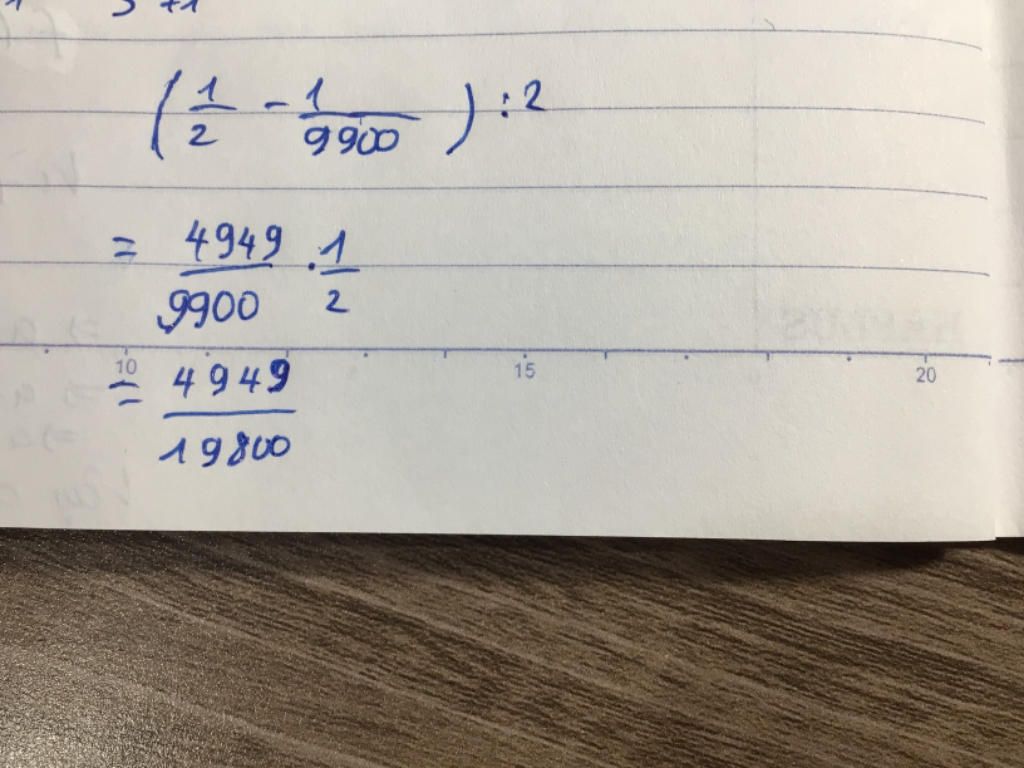 (1/2 - 1/9900) : 2
= 4949/9900 . 1/2
10 15 20
= 4949/19800